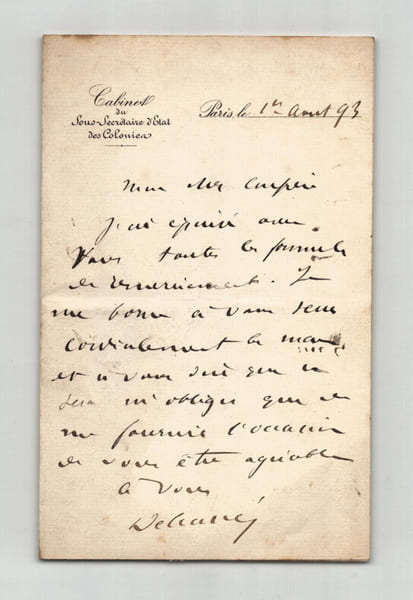 Cabinet
du
Sous-Secrétaire d'Etat
des Colonies
Paris, le 1er Aout 93
Mon cher Confrère
J'ai épuisé avec
vous toutes les formules
de remerciement. Je
me borne à vous serrer
cordialement la main
et à vous dire que ce
sera m'obliger que de
me fournir l'occasion
de vous être agréable
à vous
Delcassé